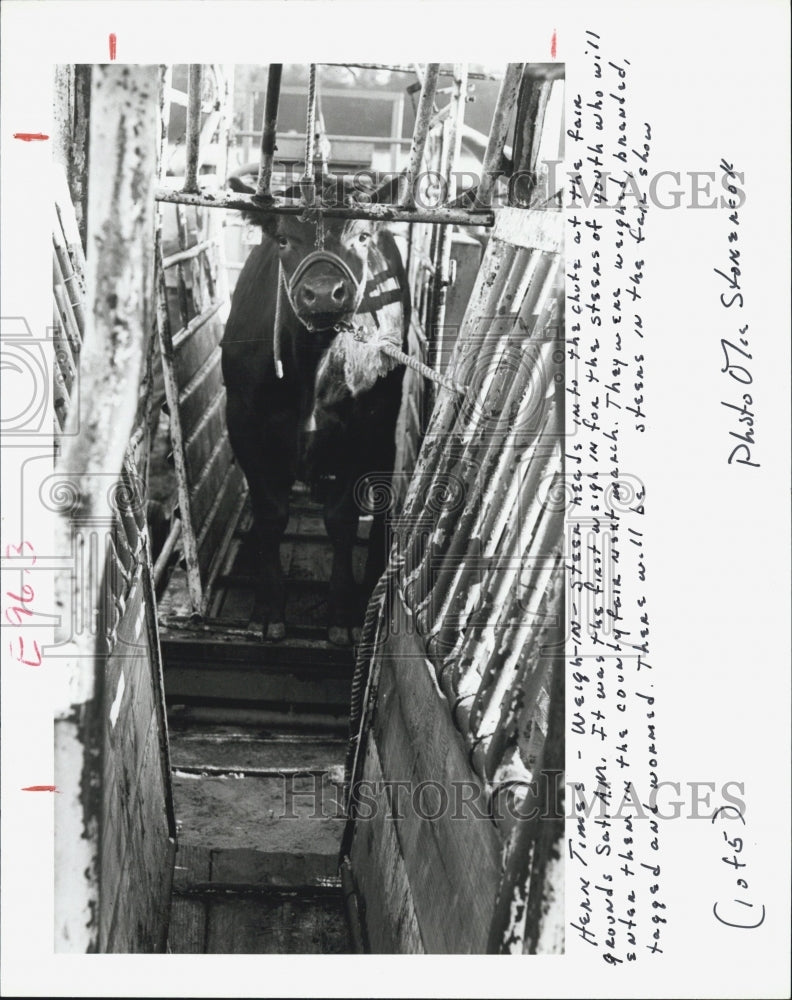 HERN TIMES - WEIGH-IN - STEER HEADS INTO the chute AT the fair
grounds Sat. A.M. It was the first weigh in for the steers of youth who will
enter them in the county fair next march. They were weighed, branded,
tagged and wormed. There will be steers in the fair show
Photo Olie Stonerook
(1 of 5)
E96.3
HISTORIC IMAGES
HISTORIC IMAGES